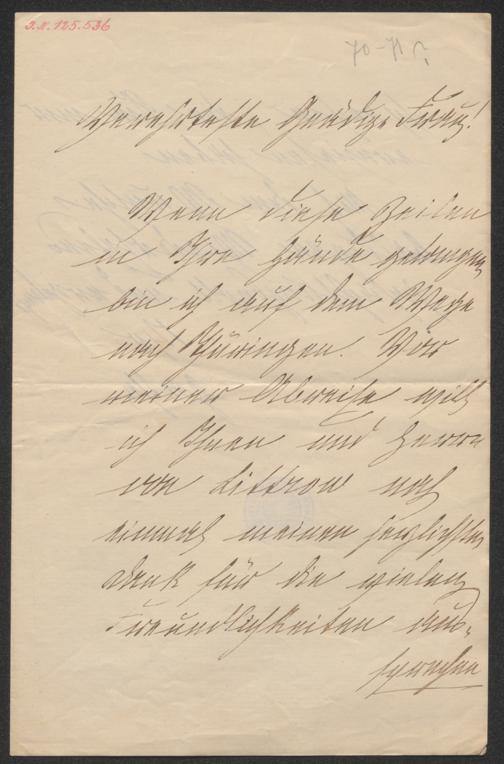 J.N. 125.536
70-71?
Verehrteste Gnädige Frau!
Wenn diese Zeilen
in Ihre Hände gelangen
bin ich auf dem Wege
nach Thüringen. Vor
meiner Abreise will
ich Ihnen und Herrn
von Littrow noch
einmal meinen herzlichsten
Dank für die vielen
Freundlichkeiten aus-
sprechen